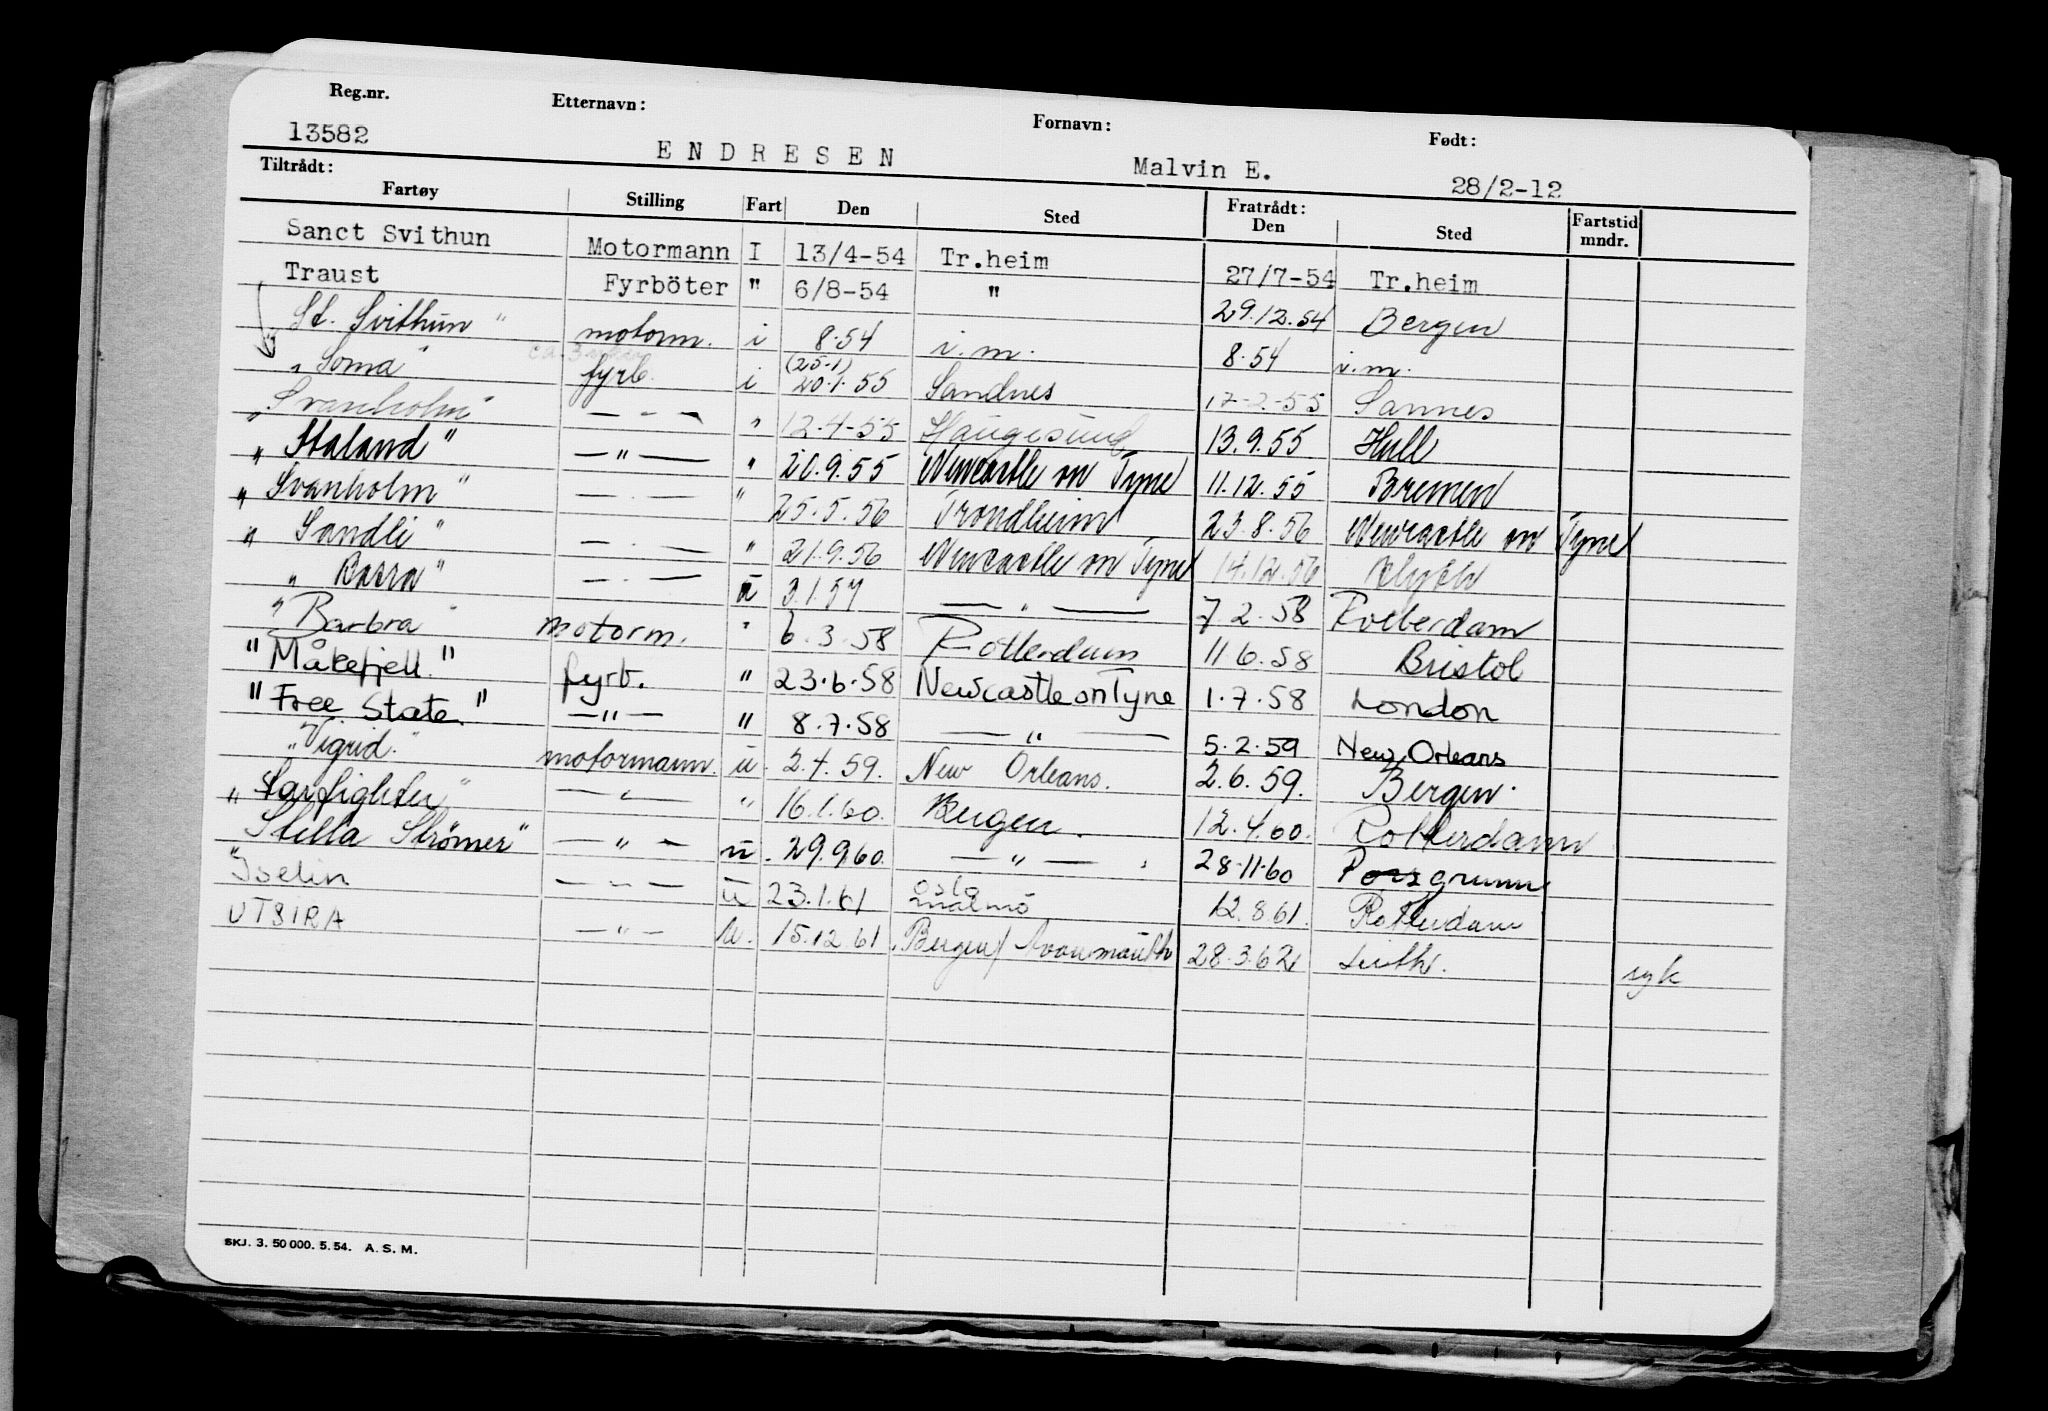 Reg.nr. Etternavn: Fornavn: Født:
13582 ENDRESEN Malvin E. 28/2-12
Tiltrådt: Fratrådt:
Fartøy Stilling Fart Den Sted Den Sted Fartstid mndr.
Sanct Svithun Motormann I 13/4-54 Tr.heim 27/7-54 Tr.heim
Traust Fyrböter " 6/8-54 " 29.12.54 Bergen
St. Svithun " motorm. i 8.54 i.m. 8.54 i.m.
"Soma" ca. 3 fyrb. i (25-1) 20.1.55 Sandnes 17-2-55 Sannes
"Svanholm" — " — " 12.4-55 Haugesund 13.9.55 Hull
"Staland" — " — " 20.9.55 Newcastle on Tyne 11.12.55 Bremen
"Svanholm" — " — " 25.5.56 Trondheim 23.8.56 Newcastle on Tyne
"Sandli" — " — " 21.9.56 Newcastle on Tyne 14.12.56 Blyth
"Basra" — " — u 3.1.57 — " — 7.2.58 Rotterdam
"Barbra" motorm. " 6.3.58 Rotterdam 11 6.58 Bristol
"Måkefjell." fyrb. " 23.6.58 Newcastle on Tyne 1.7.58 London
"Free State." — " — " 8.7.58 — " — 5.2.59 New Orleans
"Vigrid." motormann. u. 2.4.59. New Orleans. 2.6.59. Bergen.
"Starfighter" — " — " 16.1.60. Bergen. 12.4.60. Rotterdam
"Stella Strømer" — " — u. 29.9.60. — " — . 28.11.60 Porsgrunn
"Iselin — " — u 23.1.61 Oslo Malmö 12.8.61. Rotterdam
UTSIRA — " — u. 15.12.61. Bergen/Avonmouth 28.3.62 Leith. syk
SKJ. 3. 50 000. 5. 54. A. S. M.